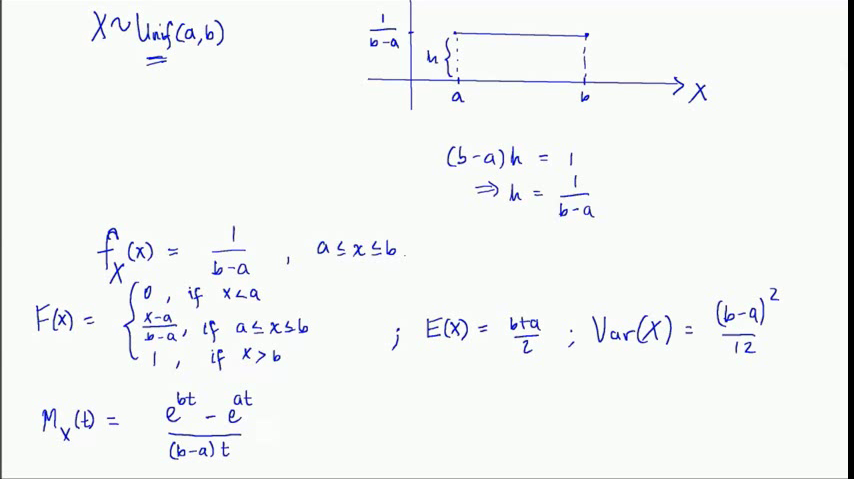 X ~ Unif(a,b)
1/(b-a)
h {
a b X
(b-a)h = 1
⇒ h = 1/(b-a)
f_X(x) = 1/(b-a) , a ≤ x ≤ b.
F(x) = { 0 , if x<a
(x-a)/(b-a) , if a ≤ x ≤ b
1 , if x > b
; E(X) = (b+a)/2 ; Var(X) = (b-a)²/12
M_X(t) = (e^{bt} - e^{at})/((b-a)t)